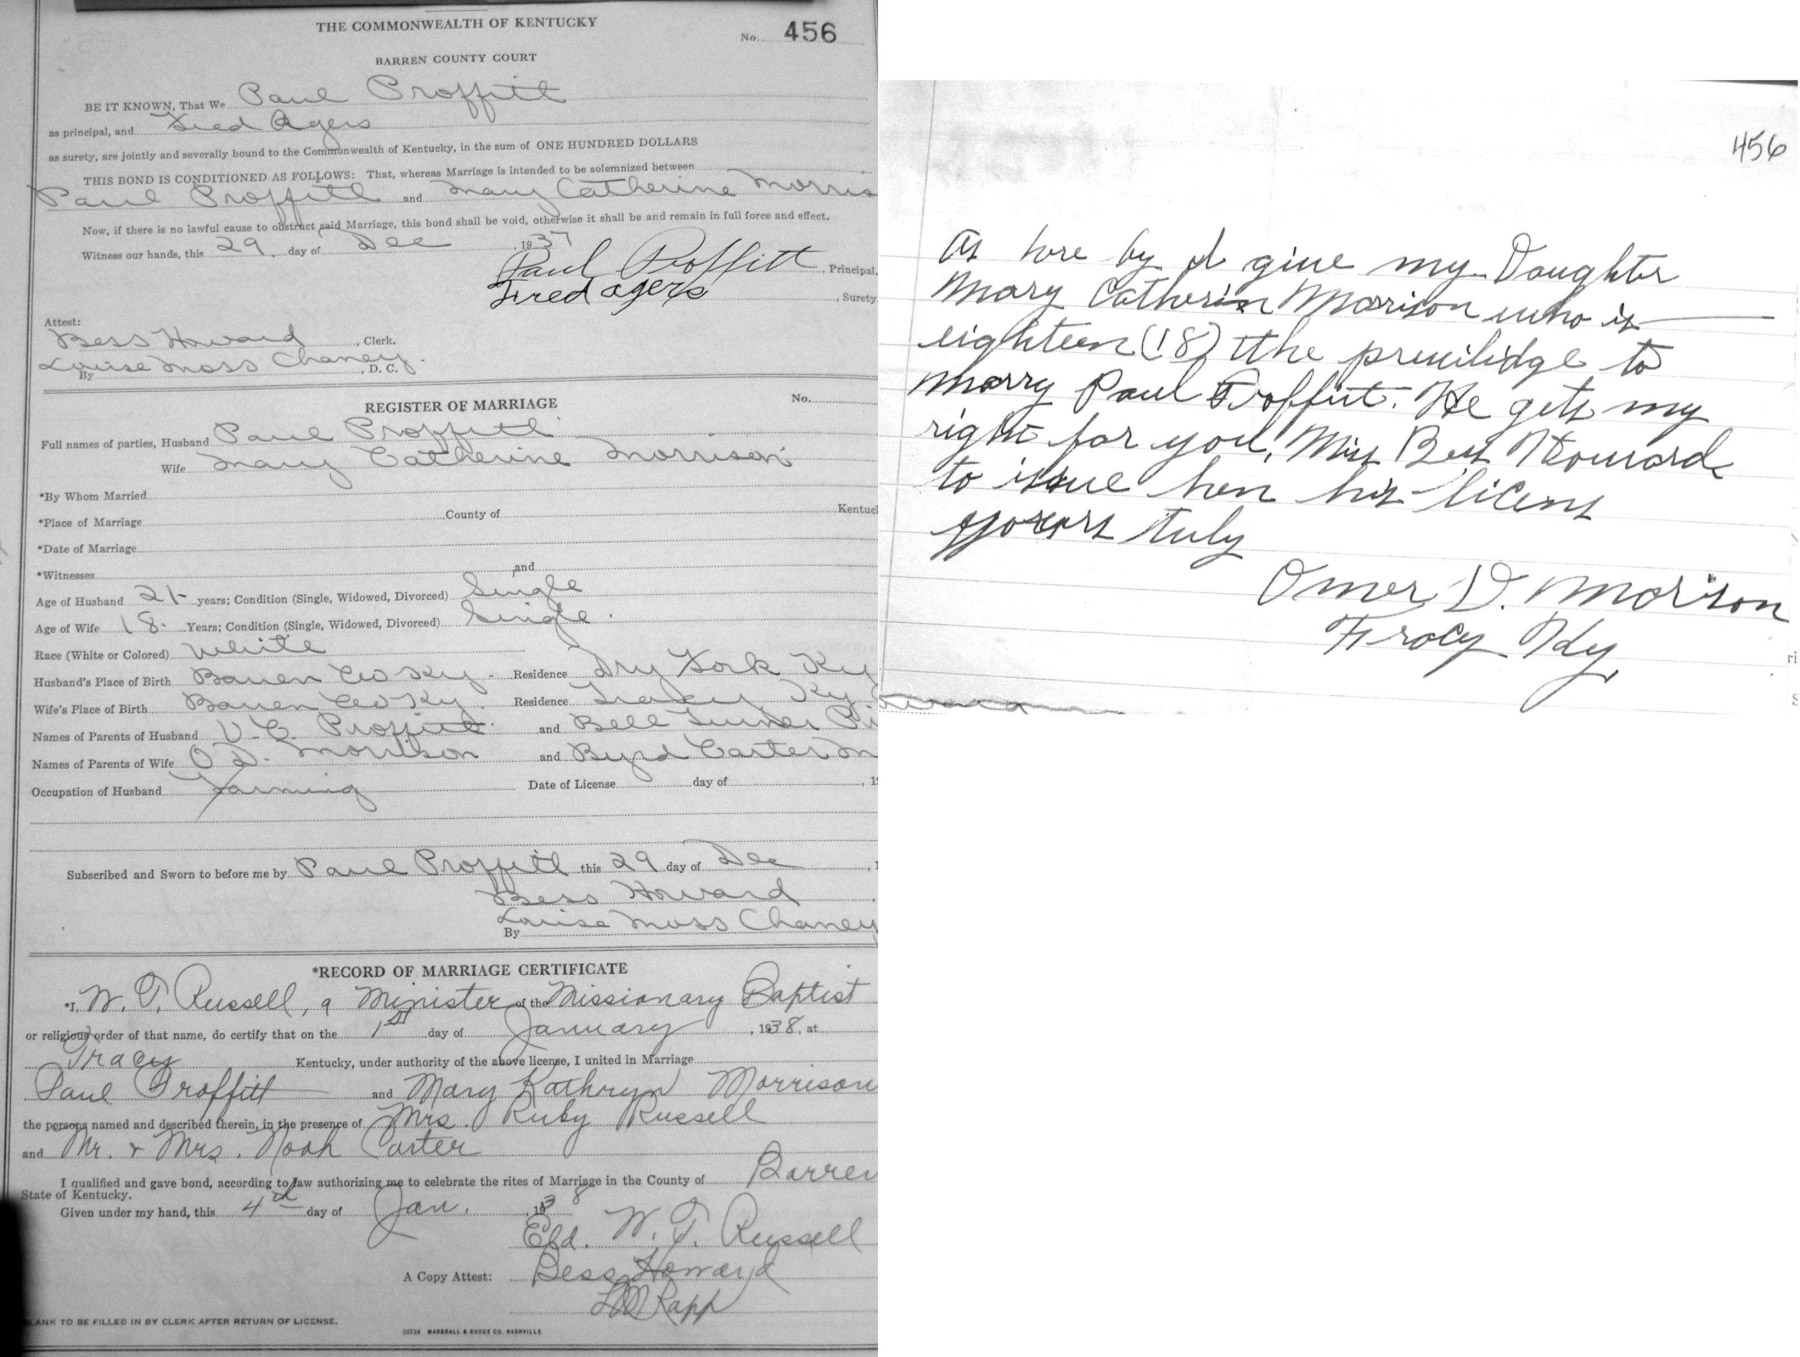 THE COMMONWEALTH OF KENTUCKY
No. 456
BARREN COUNTY COURT
BE IT KNOWN, That We Paul Proffitt
as principal, and Fred Agers
as surety, are jointly and severally bound to the Commonwealth of Kentucky, in the sum of ONE HUNDRED DOLLARS
THIS BOND IS CONDITIONED AS FOLLOWS: That, whereas Marriage is intended to be solemnized between
Paul Proffitt and Mary Catherine Morris
Now, if there is no lawful cause to obstruct said Marriage, this bond shall be void, otherwise it shall be and remain in full force and effect.
Witness our hands, this 29 day of Dec , 1937
Paul Proffitt , Principal,
Fred Agers , Surety
Attest:
Bess Howard , Clerk.
By Louise Moss Chaney. , D. C.
REGISTER OF MARRIAGE No.
Full names of parties, Husband Paul Proffitt
Wife Mary Catherine Morrison
*By Whom Married
*Place of Marriage County of Kentuc
*Date of Marriage
*Witnesses and
Age of Husband 21- years; Condition (Single, Widowed, Divorced) Single
Age of Wife 18- Years; Condition (Single, Widowed, Divorced) Single.
Race (White or Colored) White
Husband's Place of Birth Barren Co Ky. Residence Dry Fork Ky
Wife's Place of Birth Barren Co Ky. Residence Tracy Ky
Names of Parents of Husband V. C. Proffitt and Bell Turner
Names of Parents of Wife O D. Morrison and Byrd Carter M
Occupation of Husband Farming Date of License day of , 1
Subscribed and Sworn to before me by Paul Proffitt this 29 day of Dec , 1
Bess Howard
By Louise Moss Chaney
*RECORD OF MARRIAGE CERTIFICATE
*I, W. T. Russell, a Minister of the Missionary Baptist
or religious order of that name, do certify that on the 1st day of January , 1938, at
Tracy Kentucky, under authority of the above license, I united in Marriage
Paul Proffitt and Mary Kathryn Morrison
the persons named and described therein, in the presence of Mrs. Ruby Russell
and Mr. & Mrs. Noah Carter
I qualified and gave bond, according to law authorizing me to celebrate the rites of Marriage in the County of Barren
State of Kentucky.
Given under my hand, this 4th day of Jan. , 1938
Eld. W. T. Russell
A Copy Attest: Bess Howard
LM Rapp
LANK TO BE FILLED IN BY CLERK AFTER RETURN OF LICENSE.
MARSHALL & BRUCE CO. NASHVILLE
456
As here by I give my Daughter
Mary Catherin Morrison who is
eighteen (18) the privilidge to
marry Paul Proffitt. He gets my
right for you, Miss Bess Howard
to issue hen his licens
yours truly
Omer D. Morison
Tracy Ky,